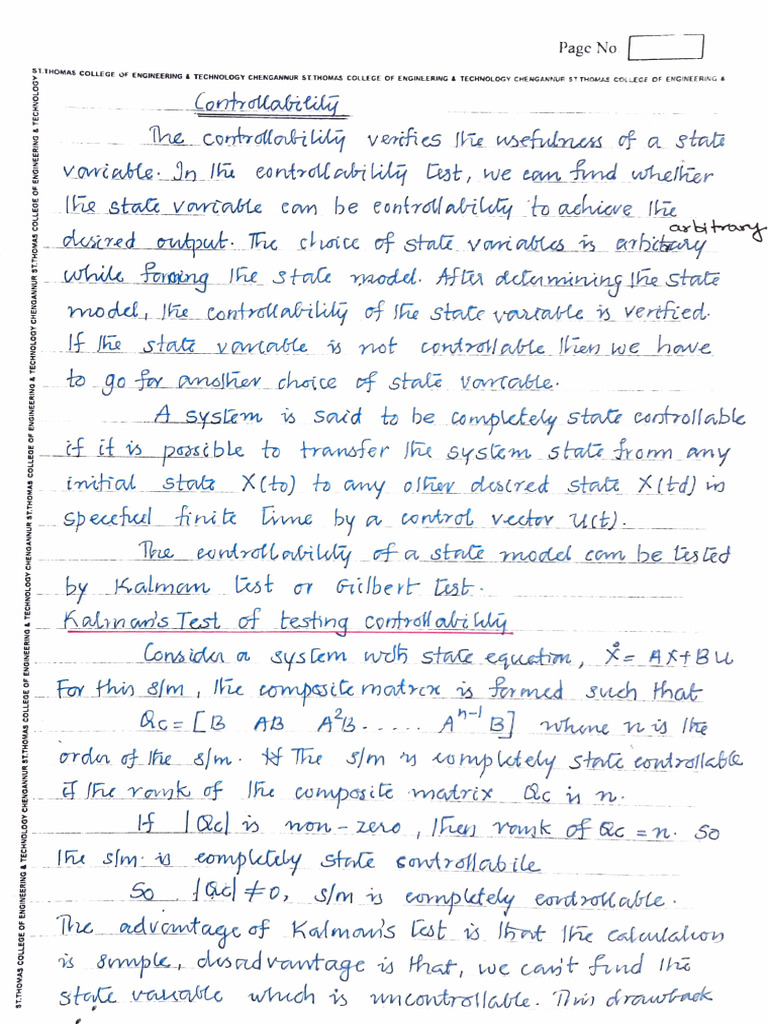 Page No
ST.THOMAS COLLEGE OF ENGINEERING & TECHNOLOGY CHENGANNUR ST.THOMAS COLLEGE OF ENGINEERING & TECHNOLOGY CHENGANNUR ST.THOMAS COLLEGE OF ENGINEERING &
ST.THOMAS COLLEGE OF ENGINEERING & TECHNOLOGY CHENGANNUR ST.THOMAS COLLEGE OF ENGINEERING & TECHNOLOGY CHENGANNUR ST.THOMAS COLLEGE OF ENGINEERING & TECHNOLOGY
Controllability
The controllability verifies the usefulness of a state
variable. In the controllability test, we can find whether
the state variable can be controllability to achieve the
arbitrary
desired output. The choice of state variables is arbitrary
while forming the state model. After determining the state
model, the controllability of the state variable is verified.
If the state variable is not controllable then we have
to go for another choice of state variable.
A system is said to be completely state controllable
if it is possible to transfer the system state from any
initial state X(to) to any other desired state X(td) in
speceful finite time by a control vector U(t).
The controllability of a state model can be tested
by Kalman test or Gilbert test.
Kalman's Test of testing controllability
Consider a system with state equation, Ẋ = AX+BU
For this s/m, the composite matrix is formed such that
Qc = [B AB A²B ..... Aⁿ⁻¹ B] where n is the
order of the s/m. The s/m is completely state controllable
if the rank of the composite matrix Qc is n.
If |Qc| is non-zero, then rank of Qc = n. So
the s/m is completely state controllabile
So |Qc| ≠ 0, s/m is completely controllable.
The advantage of Kalman's test is that the calculation
is simple, disadvantage is that, we can't find the
state variable which is uncontrollable. This drawback